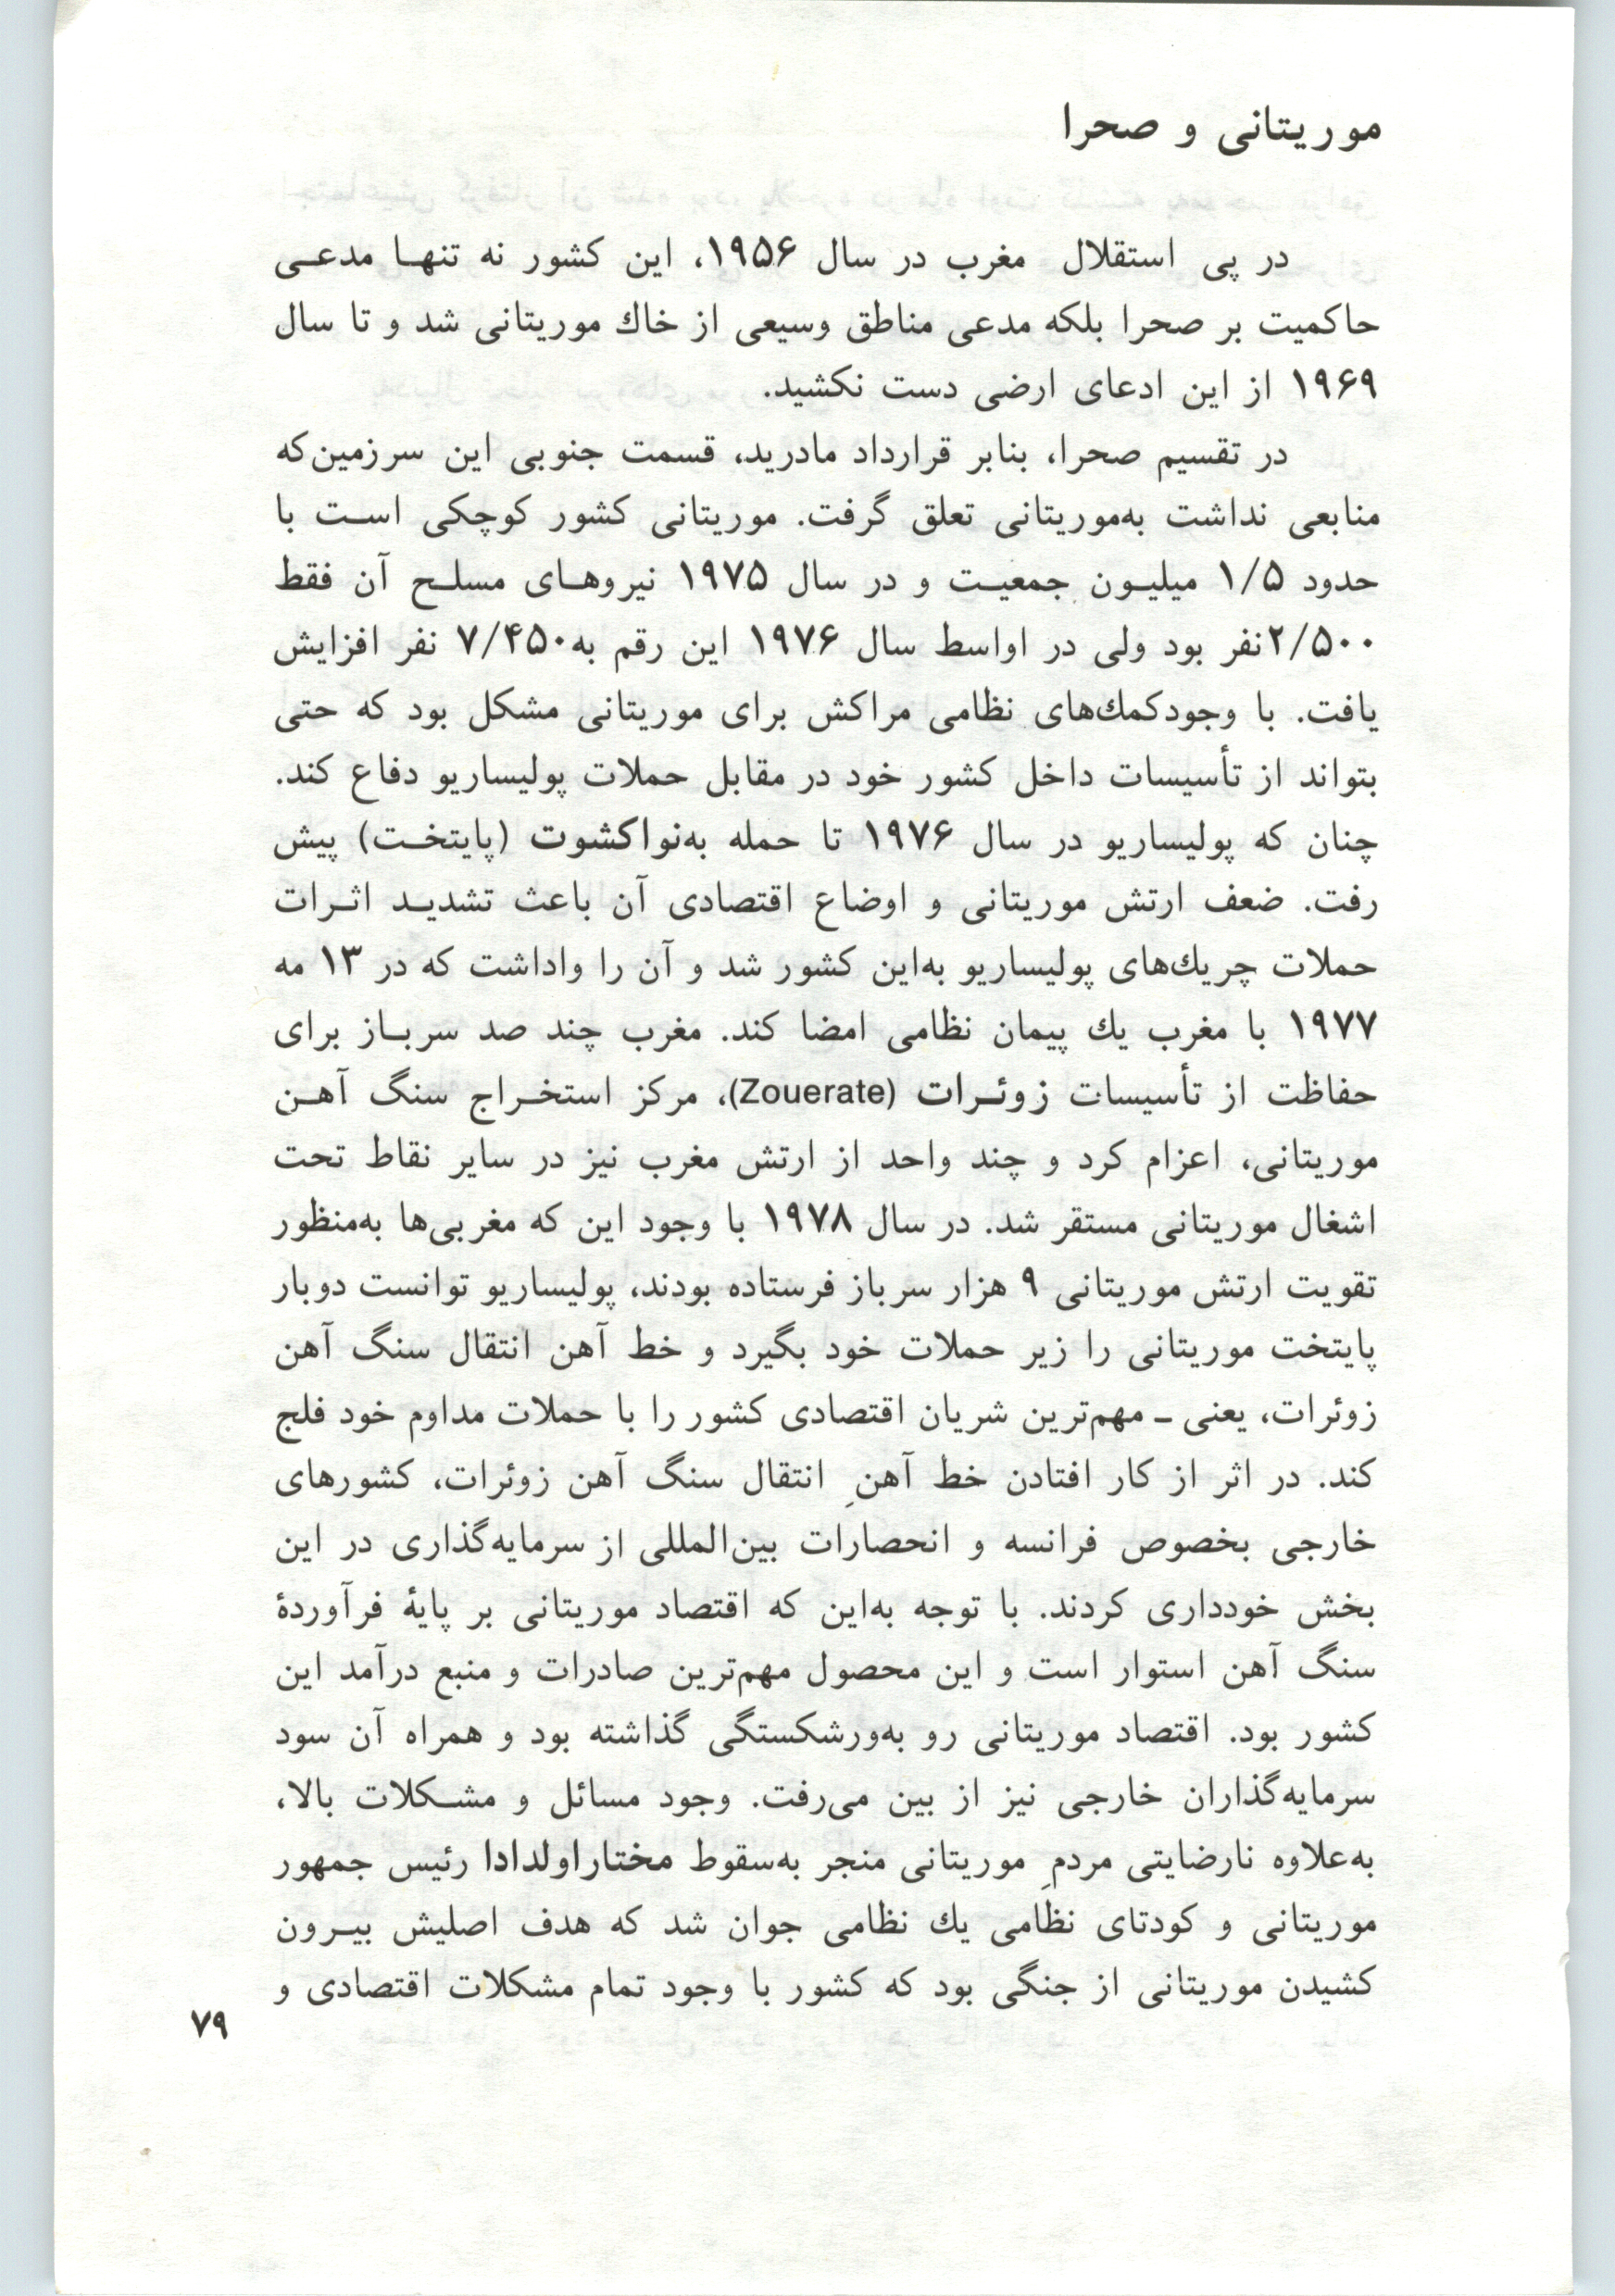 موریتانی و صحرا
در پی استقلال مغرب در سال ۱۹۵۶، این کشور نه تنها مدعی
حاکمیت بر صحرا بلکه مدعی مناطق وسیعی از خاك موریتانی شد و تا سال
۱۹۶۹ از این ادعای ارضی دست نکشید.
در تقسیم صحرا، بنابر قرارداد مادرید، قسمت جنوبی این سرزمین‌که
منابعی نداشت به‌موریتانی تعلق گرفت. موریتانی کشور کوچکی است با
حدود ۱/۵ میلیون جمعیت و در سال ۱۹۷۵ نیروهای مسلح آن فقط
۲/۵۰۰نفر بود ولی در اواسط سال ۱۹۷۶ این رقم به‌۷/۴۵۰ نفر افزایش
یافت. با وجودکمك‌های نظامی مراکش برای موریتانی مشکل بود که حتی
بتواند از تأسیسات داخل کشور خود در مقابل حملات پولیساریو دفاع کند.
چنان که پولیساریو در سال ۱۹۷۶ تا حمله به‌نواکشوت (پایتخت) پیش
رفت. ضعف ارتش موریتانی و اوضاع اقتصادی آن باعث تشدید اثرات
حملات چریك‌های پولیساریو به‌این کشور شد و آن را واداشت که در ۱۳ مه
۱۹۷۷ با مغرب یك پیمان نظامی امضا کند. مغرب چند صد سرباز برای
حفاظت از تأسیسات زوئرات (Zouerate)، مرکز استخراج سنگ آهن
موریتانی، اعزام کرد و چند واحد از ارتش مغرب نیز در سایر نقاط تحت
اشغال موریتانی مستقر شد. در سال ۱۹۷۸ با وجود این که مغربی‌ها به‌منظور
تقویت ارتش موریتانی ۹ هزار سرباز فرستاده بودند، پولیساریو توانست دوبار
پایتخت موریتانی را زیر حملات خود بگیرد و خط آهن انتقال سنگ آهن
زوئرات، یعنی ـ مهم‌ترین شریان اقتصادی کشور را با حملات مداوم خود فلج
کند. در اثر از کار افتادن خط آهنِ انتقال سنگ آهن زوئرات، کشورهای
خارجی بخصوص فرانسه و انحصارات بین‌المللی از سرمایه‌گذاری در این
بخش خودداری کردند. با توجه به‌این که اقتصاد موریتانی بر پایهٔ فرآوردهٔ
سنگ آهن استوار است و این محصول مهم‌ترین صادرات و منبع درآمد این
کشور بود. اقتصاد موریتانی رو به‌ورشکستگی گذاشته بود و همراه آن سود
سرمایه‌گذاران خارجی نیز از بین می‌رفت. وجود مسائل و مشکلات بالا،
به‌علاوه نارضایتی مردمِ موریتانی منجر به‌سقوط مختاراولدادا رئیس جمهور
موریتانی و کودتای نظامی یك نظامی جوان شد که هدف اصلیش بیرون
کشیدن موریتانی از جنگی بود که کشور با وجود تمام مشکلات اقتصادی و
۷۹